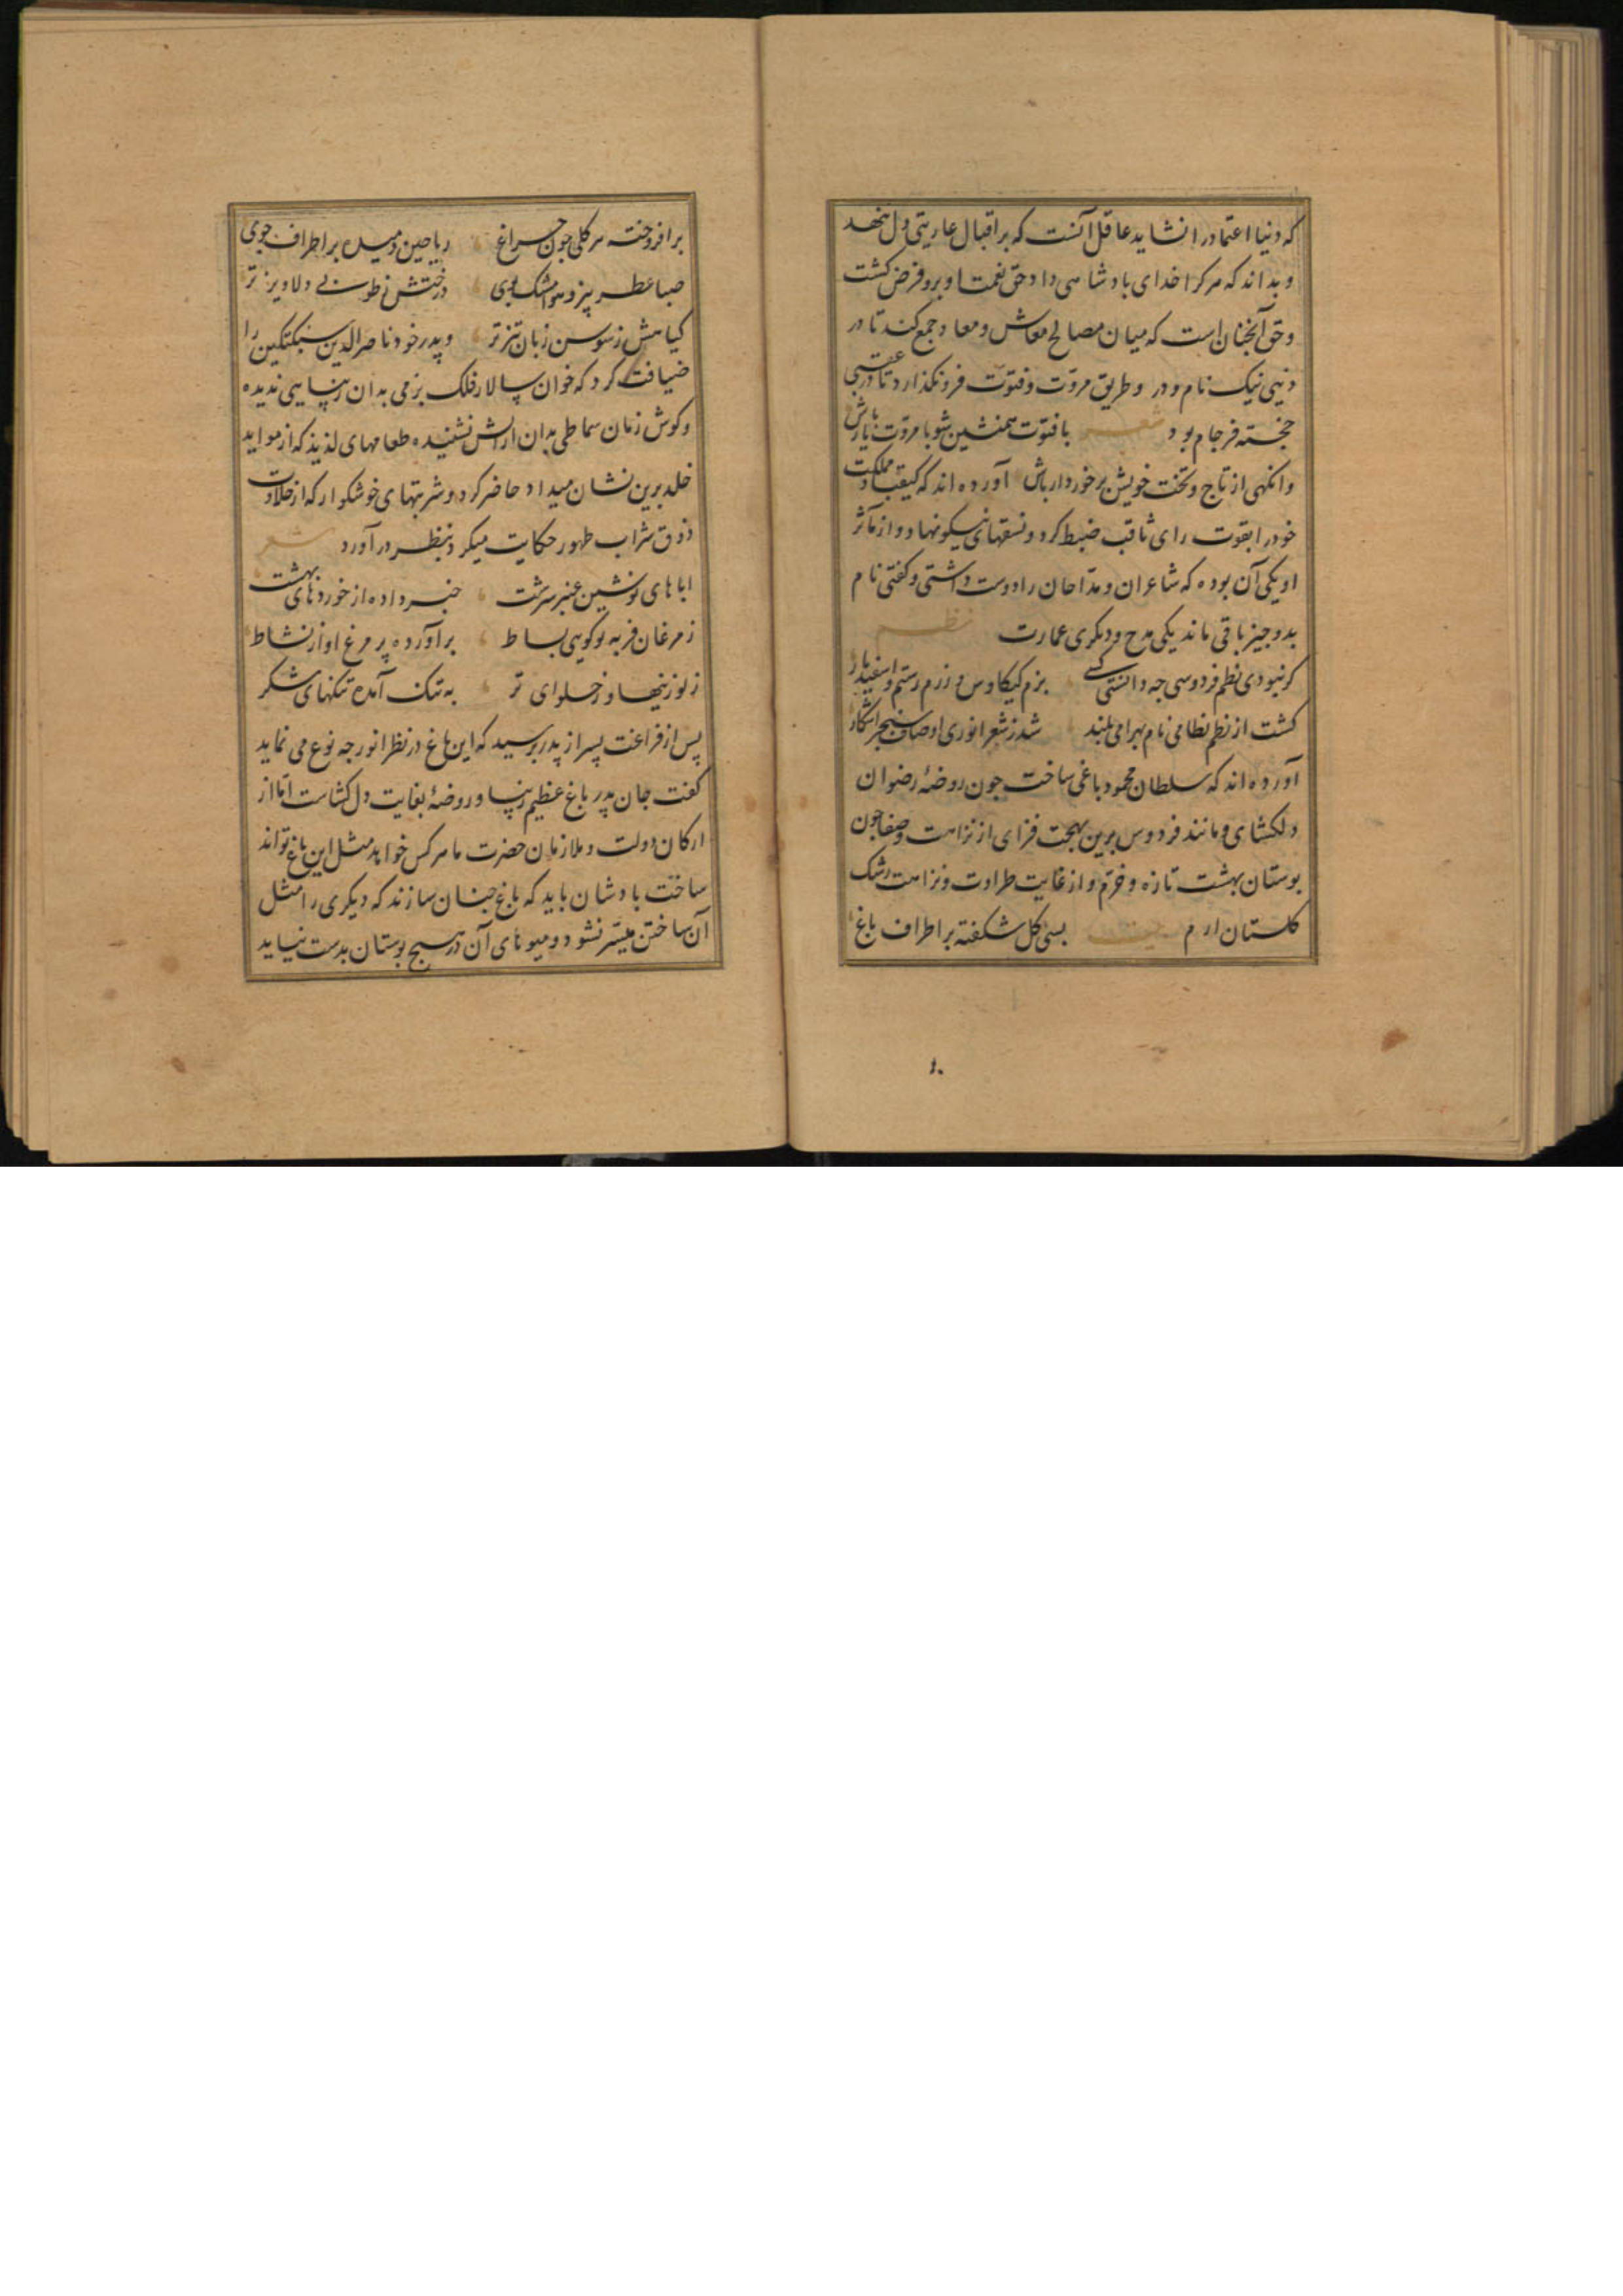 که دنیا اعتماد را نشاید عاقل آنست که بر اقبال عاریتی دل ننهد
و بداند که هر کرا خدای بادشاهی داد حق نعمت او برو فرض کشت
و حق آنجنان است که میان مصالح معاش و معاد جمع کند تا در
دنیی نیک نام بود و طریق مروّت و فتوّت فرونکذارد تا در عقبی
خجسته فرجام بود شعر با فتوّت همنشین شو با مروّت یار باش
وانکهی از تاج و تخت خویش برخوردار باش آورده اند که کیقباد مملکت
خود را بقوت رای ثاقب ضبط کرد و نسقهای نیکو نهاد و از مآثر
او یکی آن بوده که شاعران و مدّاحان را دوست داشتی و کفتی نام
بدو جیز باقی ماند یکی مدح و دیکری عمارت نظم
کر نبودی نظم فردوسی جه دانستی کسی بزم کیکاوس و رزم رستم و اسفندیار
کشت از نظم نظامی نام بهرامی بلند شد ز شعر انوری اوصاف سنجر آشکار
آورده اند که سلطان محمود باغی ساخت جون روضهٔ رضوان
دلکشای و مانند فردوس برین بهجت فزای از نزاهت و صفا جون
بوستان بهشت تازه و خرّم و از غایت طراوت و نزاهت رشک
کلستان ارم بیت بسی کل شکفته بر اطراف باغ
برافروخته هر کلی جون جراغ ریاحین دمیده بر اطراف جوی
صبا عطر بیز و هوا مشک بوی درختش ز طوبی دلاویز تر
کیاهش ز سوسن زبان تیز تر و پدر خود ناصرالدین سبکتکین را
ضیافت کرد که خوان سالار فلک بزمی بدان زیبایی ندیده
و کوش زمان سماطی بدان آرایش نشنیده طعامهای لذیذ که از موایده
خلد برین نشان میداد حاضر کرد و شربتهای خوشکوار که از حلاوت
ذوق شراب طهور حکایت میکرد بنظر در آورد شعر
اباهای نوشین عنبر سرشت خبر داده از خوردنهای بهشت
ز مرغان فربه تو کویی بساط برآورده پر مرغ آواز نشاط
ز لوزینها و ز حلوای تر به تنک آمده تنکهای شکر
پس از فراغت پسر از پدر پرسید که این باغ در نظر انور جه نوع می نماید
کفت جان پدر باغ عظیم زیبا و روضهٔ بغایت دلکشاست اما از
ارکان دولت و ملازمان حضرت ما هر کس خواهد مثل این باغ تواند
ساخت بادشان باید که باغ جنان سازند که دیکری را مثل
آن ساختن میسّر نشود و میوهای آن در هیج بوستان بدست نیاید